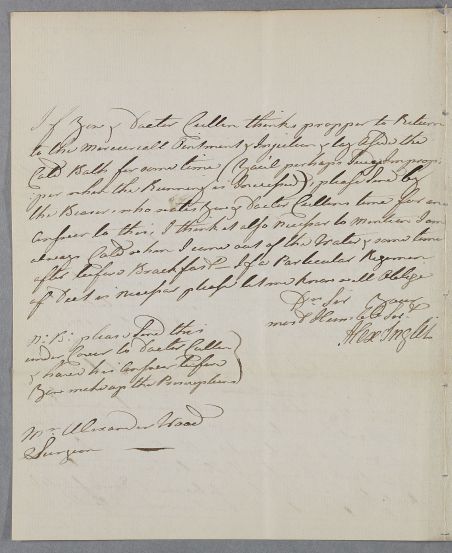 If you & Doctor Cullen think propper to Return
to the Mercuriall Ointment & Injection & lay aside the
Cold Bath for some time (Quil perhaps
per when the Running is Increased); please Send by
the Bearer who waites your & Doctor Cullens time for an
answer to this; I think it also Necessar to Mention I am
always Cold when I come out of the Water & some time
after before Brackfast — If a Particular Regemen
of Diet is Necessar please let me know will Oblige
Dr Sir Your
most Humle Ser.t
Alex Inglis
N: B: please Send this
under Cover to Doctor Cullen
& have his answer before
you make up the Prescriptions
Mr. Alexander Wood
Surgeon